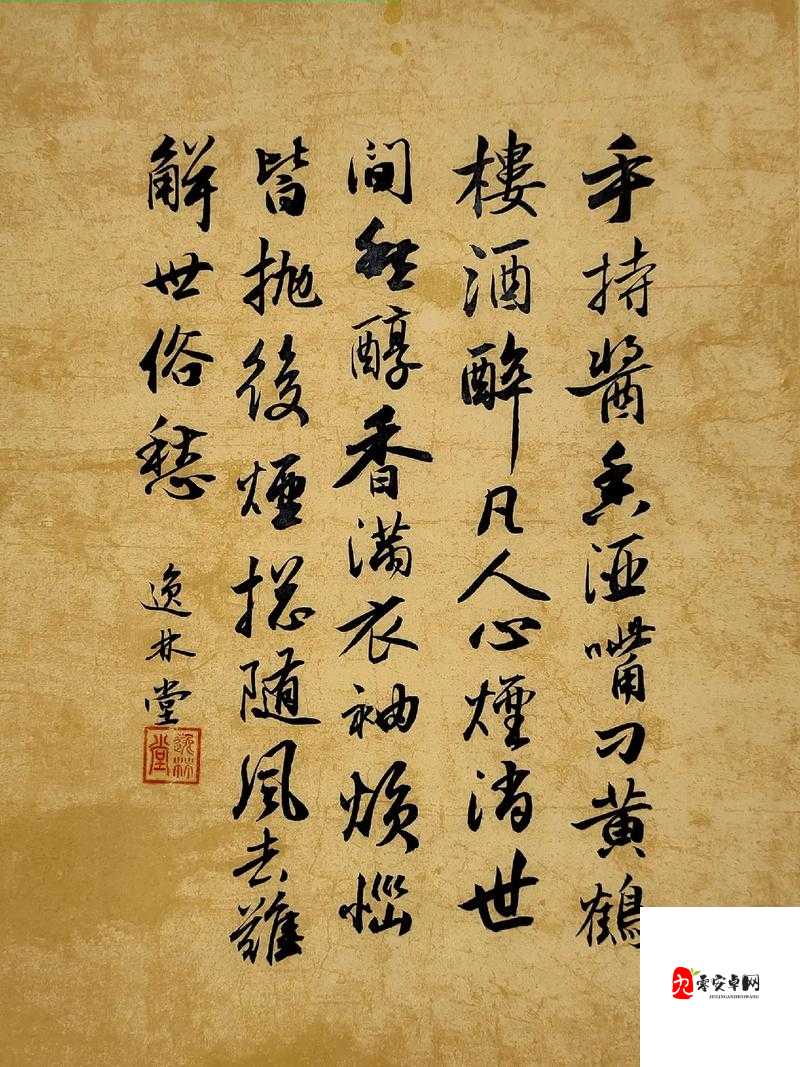 手持醬香酒嘴刁黃鶴
樓酒醉凡人心煙消世
間愁醇香滿衣袖煩惱
皆拋後煙揔隨風去難
解世俗愁
逸林堂
逸林堂
九零安卓网
JIULINGANZHUOWANG